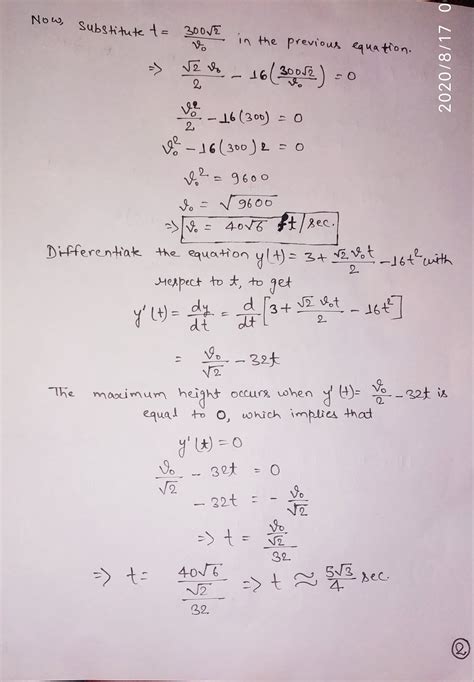 2020/8/17 0
Now, Substitute t = 300√2/v₀ in the previous equation.
⇒ √2 v₀/2 - 16(300√2/v₀) = 0
v₀²/2 - 16(300) = 0
v₀² - 16(300)2 = 0
v₀² = 9600
v₀ = √9600
⇒ v₀ = 40√6 ft/sec.
Differentiate the equation y(t) = 3 + √2 v₀t/2 - 16t² with
respect to t, to get
y'(t) = dy/dt = d/dt [3 + √2 v₀t/2 - 16t²]
= v₀/√2 - 32t
The maximum height occurs when y'(t) = v₀/2 - 32t is
equal to 0, which implies that
y'(t) = 0
v₀/√2 - 32t = 0
- 32t = - v₀/√2
⇒ t = v₀/√2/32
⇒ t = 40√6/√2/32 ⇒ t ≈ 5√3/4 sec.
2